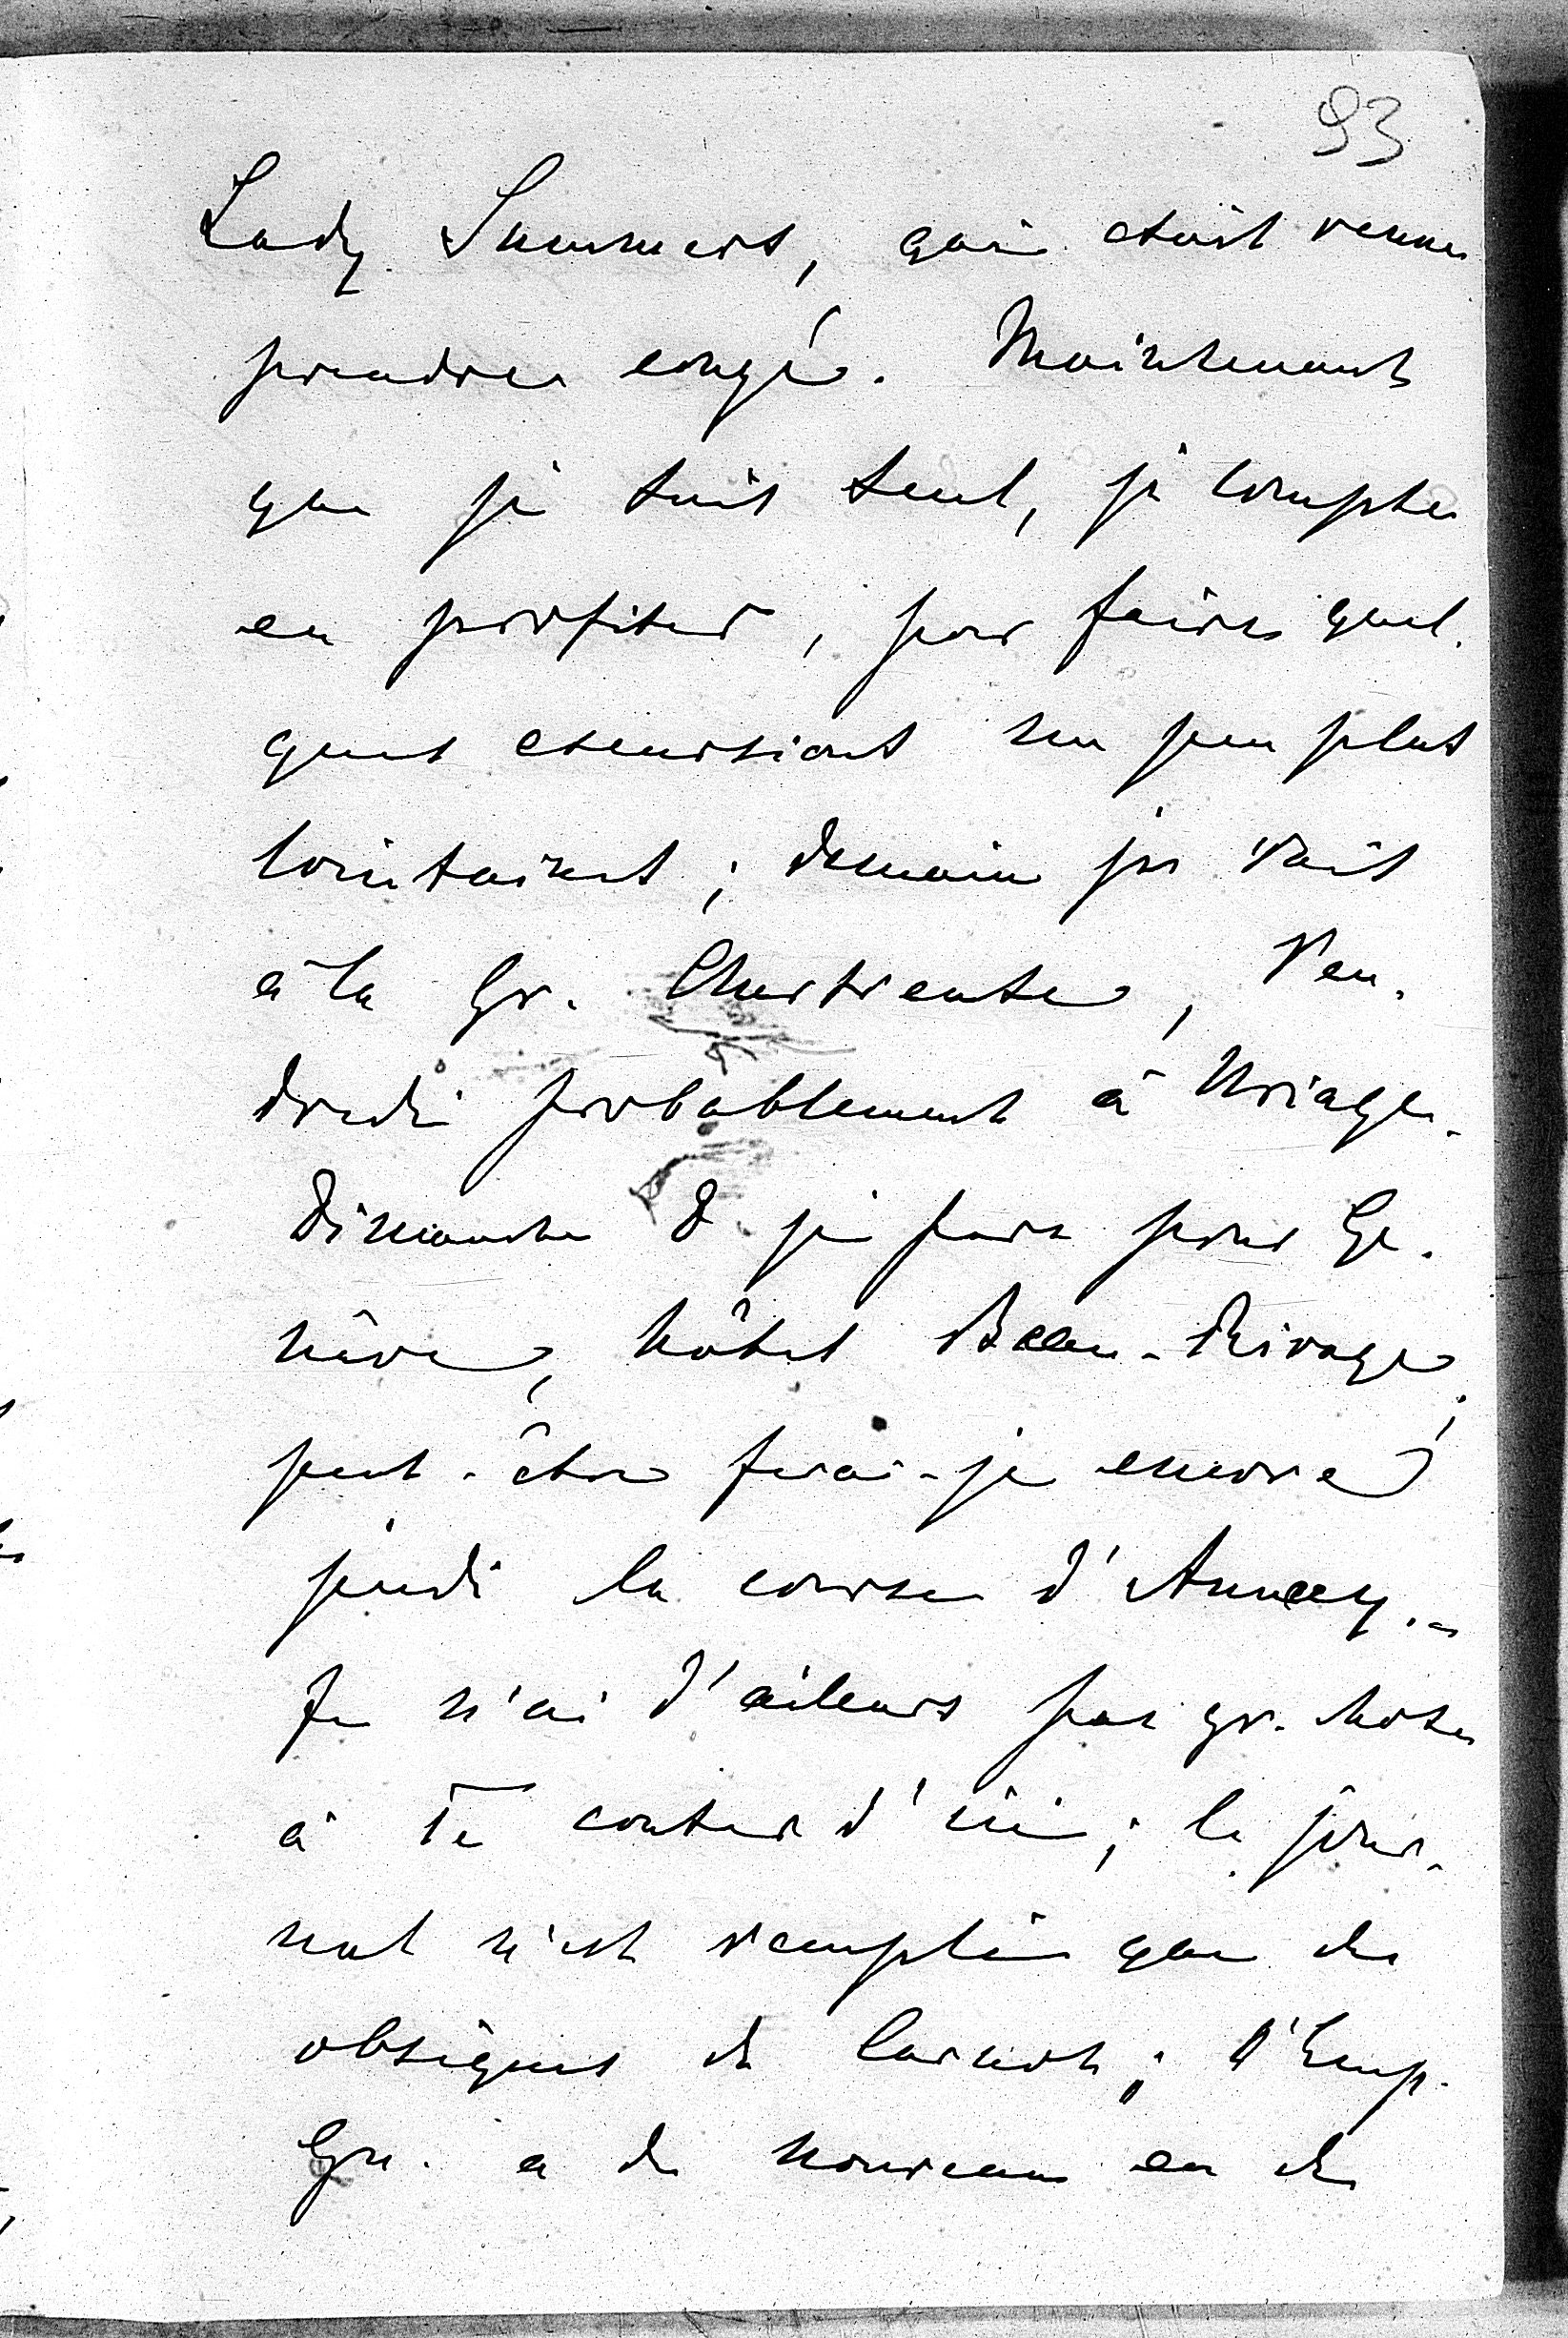 93
Lady Summers, qui était venue
prendre congé. Maintenant
que je suis seul, je compte
en profiter, pour faire quel-
ques excursions un peu plus
lointaines; demain je vais
à la Gr. Chartreuse, Ven-
dredi probablement à Uriage.
Dimanche 8 je pars pour Ge-
nève, hôtel Beau-Rivage;
peut-être ferai-je encore
jeudi la course d'Annecy.-
Je n'ai d'ailleurs pas gr. chose
à Te conter d'ici; le jour-
nal n'est rempli que des
obsèques de Carnot; l'Emp.
Gu. a de nouveau eu de